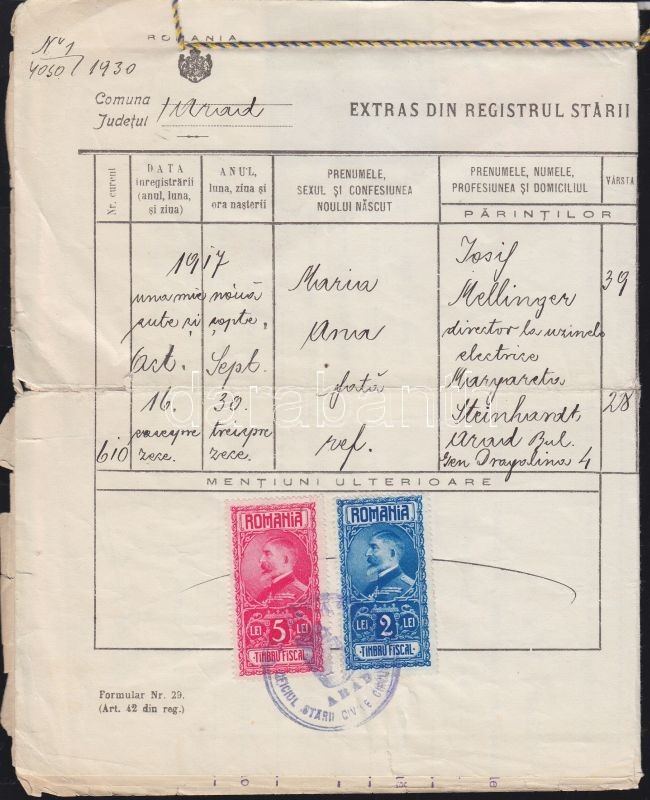 ROMANIA
No 1
4050 / 1930
Comuna
Județul
Arad
EXTRAS DIN REGISTRUL STĂRII
Nr. curent
DATA
înregistrării
(anul, luna,
și ziua)
ANUL,
luna, ziua și
ora nașterii
PRENUMELE,
SEXUL ȘI CONFESIUNEA
NOULUI NĂSCUT
PRENUMELE, NUMELE,
PROFESIUNEA ȘI DOMICILIUL
VÂRSTA
PĂRINȚILOR
610
1917
una mie nouă
sute și șapte
Oct. Sept.
16. 30.
treispre
zece. zece.
Maria
Ana
fată
ref.
Iosif
Mellinger
director la uzinele
electrice
Margareta
Steinhardt
Arad Bul.
Gen Dragalina 4
39
28
MENȚIUNI ULTERIOARE
ROMANIA
LEI 5 LEI
TIMBRU FISCAL
ROMANIA
LEI 2 LEI
TIMBRU FISCAL
ARAD
OFICIUL STĂRII CIVILE
Formular Nr. 29.
(Art. 42 din reg.)
darabanth